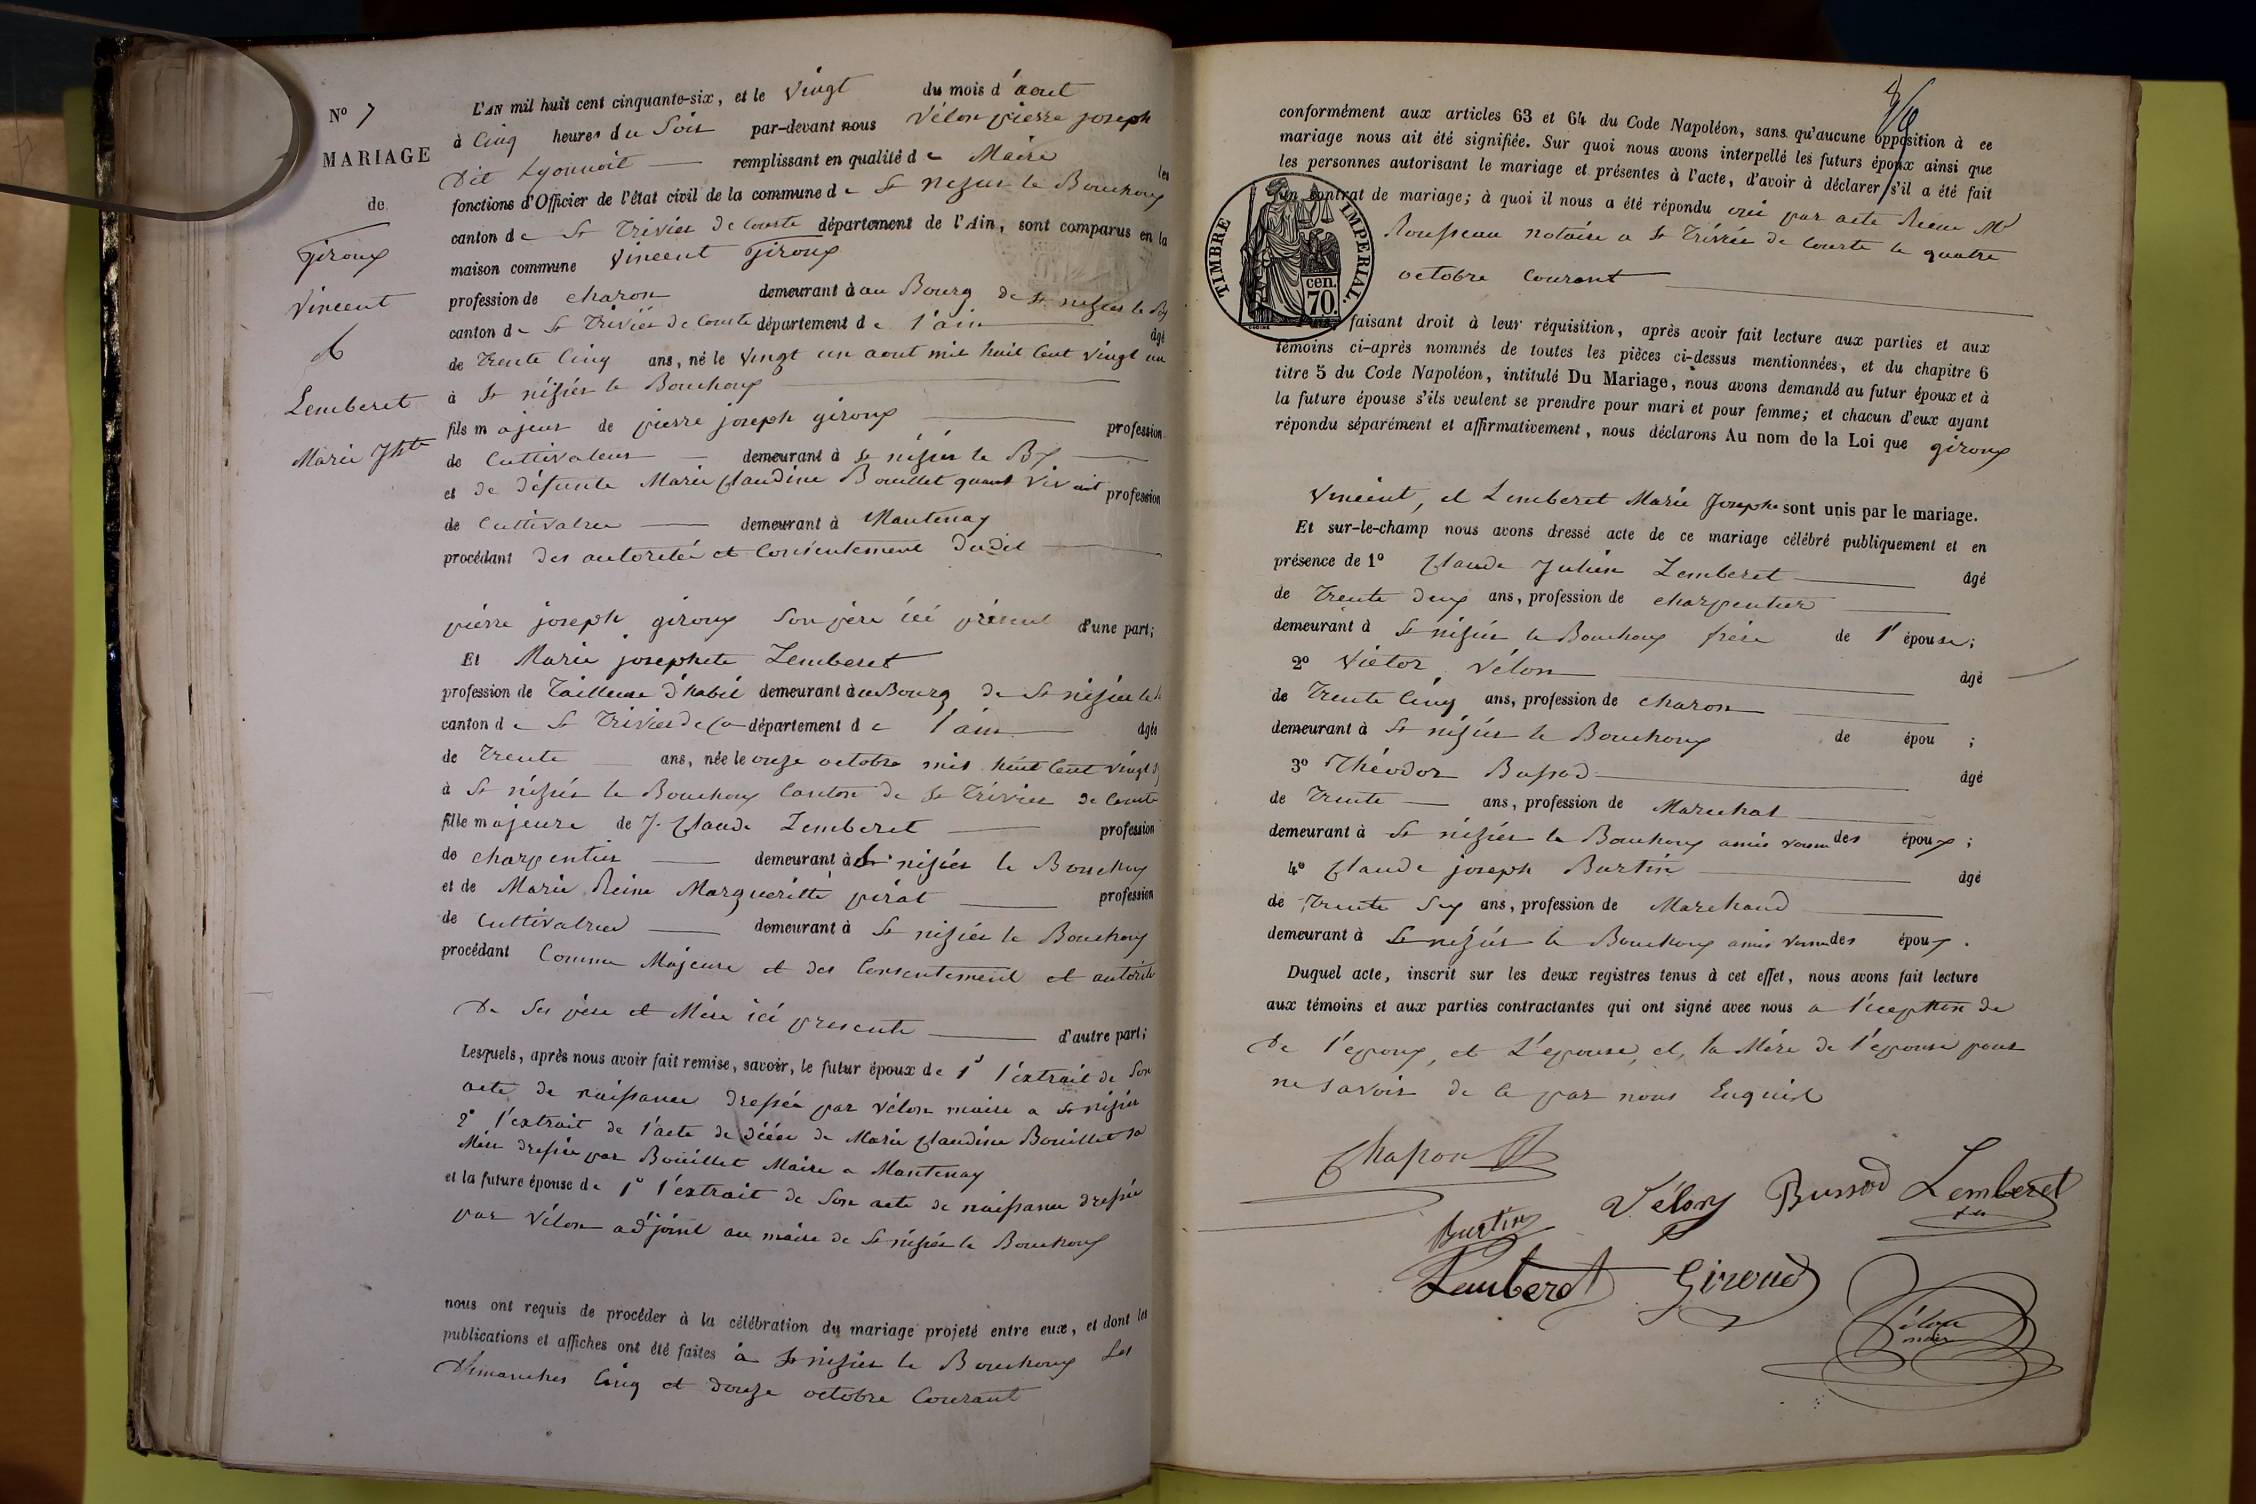 No 7
MARIAGE
de
Giroux
Vincent
&
Lemberet
Marie Jhte
L'AN mil huit cent cinquante-six, et le Vingt du mois d'aout
à Cinq heures du Soir par-devant nous Vélon pierre joseph
Dit Lyonnoit remplissant en qualité de Maire les
fonctions d'Officier de l'état civil de la commune de St nizier le Bouchoux
canton de St Trivier de Courte département de l'Ain, sont comparus en la
maison commune Vincent Giroux
profession de charon demeurant à au Bourg de St nizier le By
canton de St Trivier de Courte département de l'ain âgé
de Trente Cinq ans, né le Vingt un aout mil huit Cent Vingt un
à St nizier le Bouchoux
fils majeur de pierre joseph giroux profession
de Cultivateur demeurant à St nizier le By
et de défunte Marie Claudine Bouillet quant Vivait profession
de Cultivatrice demeurant à Mantenay
procédant des autorité et Consentement dudit
pierre joseph giroux Son père ici présent d'une part;
Et Marie josephete Lemberet
profession de Tailleuse d'habit demeurant au Bourg de St nizier le
canton de St Trivier de Co département de l'ain âgée
de Trente ans, née le onze octobre mil huit Cent Vingt
à St nizier le Bouchoux Canton de St Trivier de Courte
fille majeure de J. Claude Lemberet profession
de charpentier demeurant à St nizier le Bouchoux
et de Marie Reine Margueritte pirat profession
de Cultivatrice demeurant à St nizier le Bouchoux
procédant Comme Majeure et des Consentement et autorité
De Ses père et Mère ici presente d'autre part;
Lesquels, après nous avoir fait remise, savoir, le futur époux de 1° l'extrait de Son
acte de naissance dressée par Vélon maire a St nizier
2° l'extrait de l'acte de décée de Marie Claudine Bouillet sa
Mère dressée par Bouillet Maire a Mantenay
et la future épouse de 1° l'extrait de Son acte de naissance dressée
par Vélon adjoint au maire de St nizier le Bouchoux
nous ont requis de procéder à la célébration du mariage projeté entre eux, et dont les
publications et affiches ont été faites à St nizier le Bouchoux Les
Dimanches Cinq et douze octobre Courant
conformément aux articles 63 et 64 du Code Napoléon, sans qu'aucune opposition à ce
mariage nous ait été signifiée. Sur quoi nous avons interpellé les futurs époux ainsi que
les personnes autorisant le mariage et présentes à l'acte, d'avoir à déclarer s'il a été fait
un contrat de mariage; à quoi il nous a été répondu oui par acte Me
Rousseau notaire a St Trivier de Courte le quatre
octobre Courant
TIMBRE IMPÉRIAL.
cen.
70.
Puis, faisant droit à leur réquisition, après avoir fait lecture aux parties et aux
témoins ci-après nommés de toutes les pièces ci-dessus mentionnées, et du chapitre 6
titre 5 du Code Napoléon, intitulé Du Mariage, nous avons demandé au futur époux et à
la future épouse s'ils veulent se prendre pour mari et pour femme; et chacun d'eux ayant
répondu séparément et affirmativement, nous déclarons Au nom de la Loi que giroux
Vincent, et Lemberet Marie Josephe sont unis par le mariage.
Et sur-le-champ nous avons dressé acte de ce mariage célébré publiquement et en
présence de 1° Claude Julien Lemberet âgé
de Trente deux ans, profession de charpentier
demeurant à St nizier le Bouchoux frère de l'épouse;
2° Victor Vélon âgé
de Trente Cinq ans, profession de charon
demeurant à St nizier le Bouchoux de épou ;
3° Théodor Bussod âgé
de Trente ans, profession de Marechal
demeurant à St nizier le Bouchoux amis des époux;
4° Claude joseph Burtin âgé
de Trente Six ans, profession de Marchand
demeurant à St nizier le Bouchoux amis des époux.
Duquel acte, inscrit sur les deux registres tenus à cet effet, nous avons fait lecture
aux témoins et aux parties contractantes qui ont signé avec nous a l'éception de
De l'epoux, et L'epouse, et, la Mère de l'epouse pour
ne Savoir de ce par nous Enquis
Chapon
Vélon Bussod Lemberet
Burtin
Lemberet Giroud
Vélon
maire